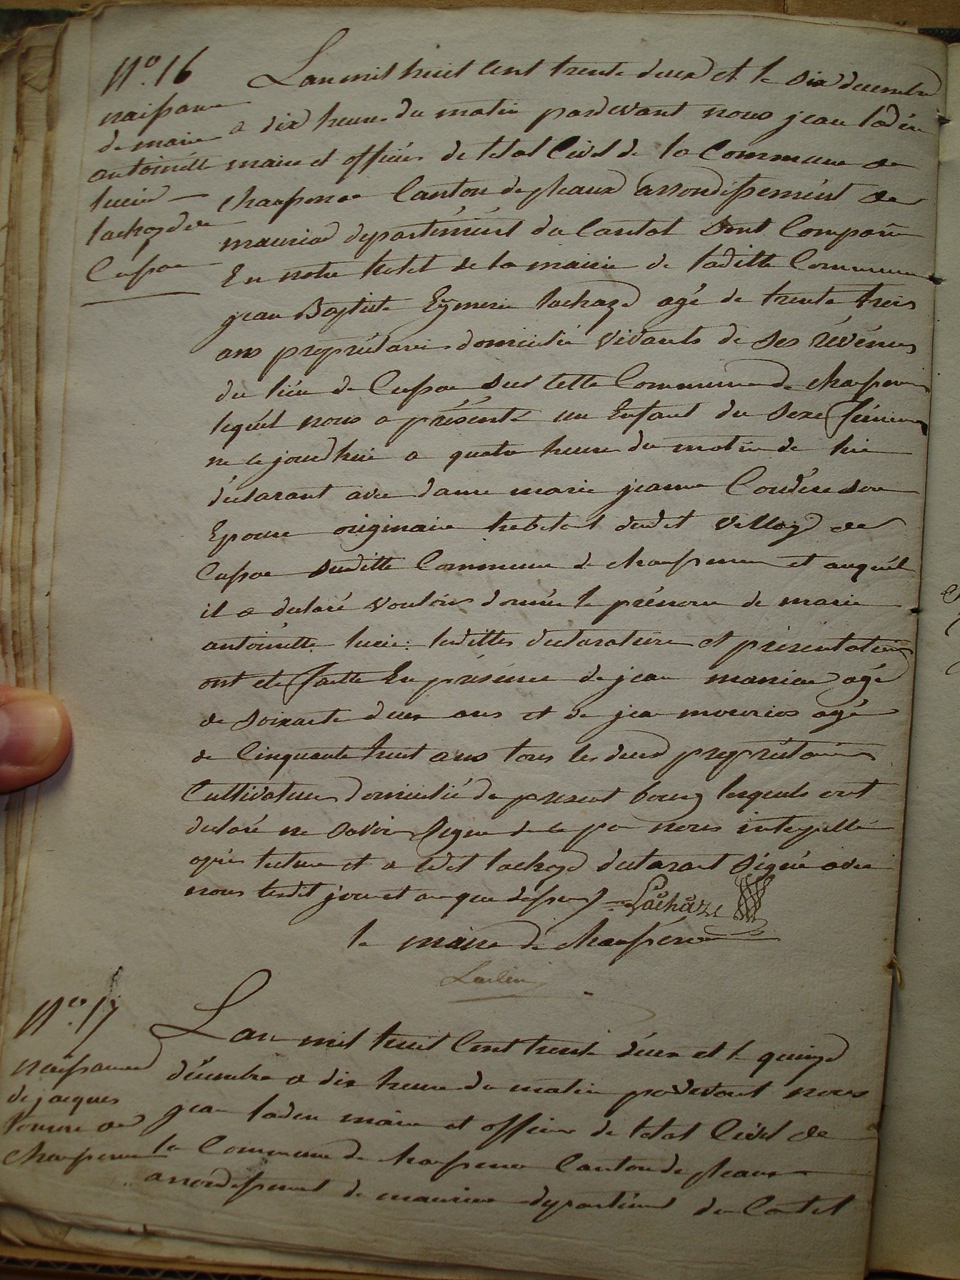 N°. 16
naissance
de marie
antoinette
lucie
lachaze de
Cussac
L'an mil huit cent trente deux et le six decembre
a dix heure du matin pardevant nous jean ladén
maire et officier de letat Civil de la Commune de
chaussenac Canton de pleaux arrondissement de
mauriac departément du Cantal sont Comparu
En notre hotel de la mairie de laditte Commune
jean Baptiste Eymerie lachaze agé de trente trois
ans propriétaire domicilié vivants de ses révénus
du lieu de Cussac sus ditte Commune de chaussenac
lequél nous a présenté un Enfant du sexe féminin
né ce jourdhui a quatre heure du matin de lui
déclarant avec dame marie jeanne Couderc son
Epouse originaire habitant dudit village de
Cussac susditte Commune de chaussenac et auquél
il a declaré vouloir donner le prénom de marie
antoinette lucie. lesdittes declaration et présentation
ont eté faitte En présence de jean agé
de soixante deux ans et de jean agé
de Cinquante huit ans tous les deux propriétaires
Cultivateurs domicilié du present bourg lesquels ont
declaré ne savoir signer de ce par nous interpellé
après lecture et a ledit lachaze déclarant signé avec
nous lesdit jour et an que dessus Lachaze
le maire de chaussenac
N°. 17
naissance
de jacques
de
chaussenac
L'an mil huit Cent trente deux et le quinze
décembre a dix heure du matin pardevant nous
jean ladén maire et officier de letat Civil de
la Commune de chaussenac Canton de pleaux
arrondissement de mauriac departément du Cantal